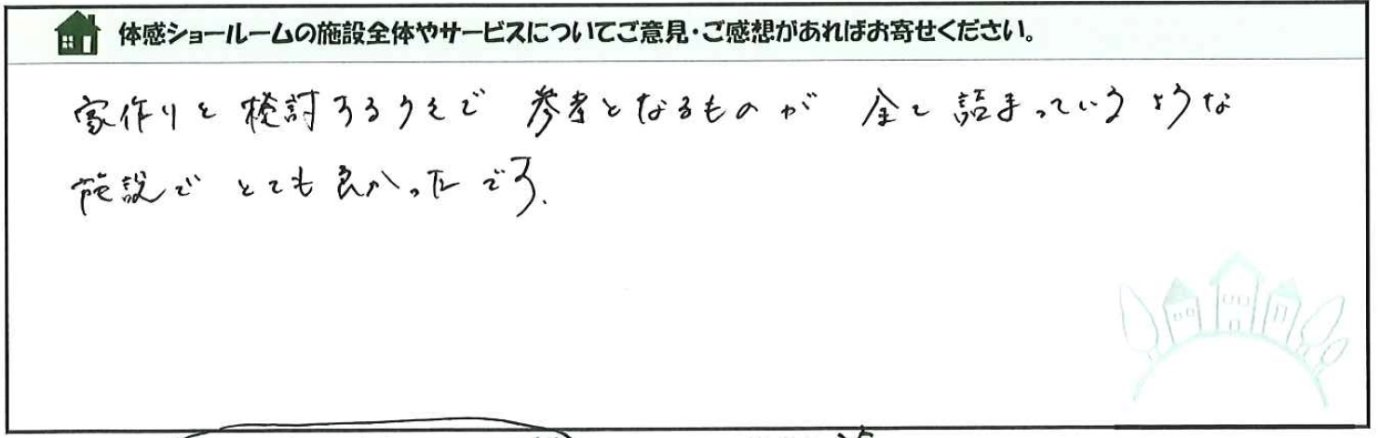 体感ショールームの施設全体やサービスについてご意見・ご感想があればお寄せください。
家作りを検討するうえで 参考となるものが 全て詰まっているような
施設で とても良かったです.